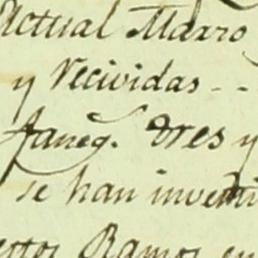 Actual Marzo
y Recividas - -
faneg. Dres y
se han inverti
estos Ramos en